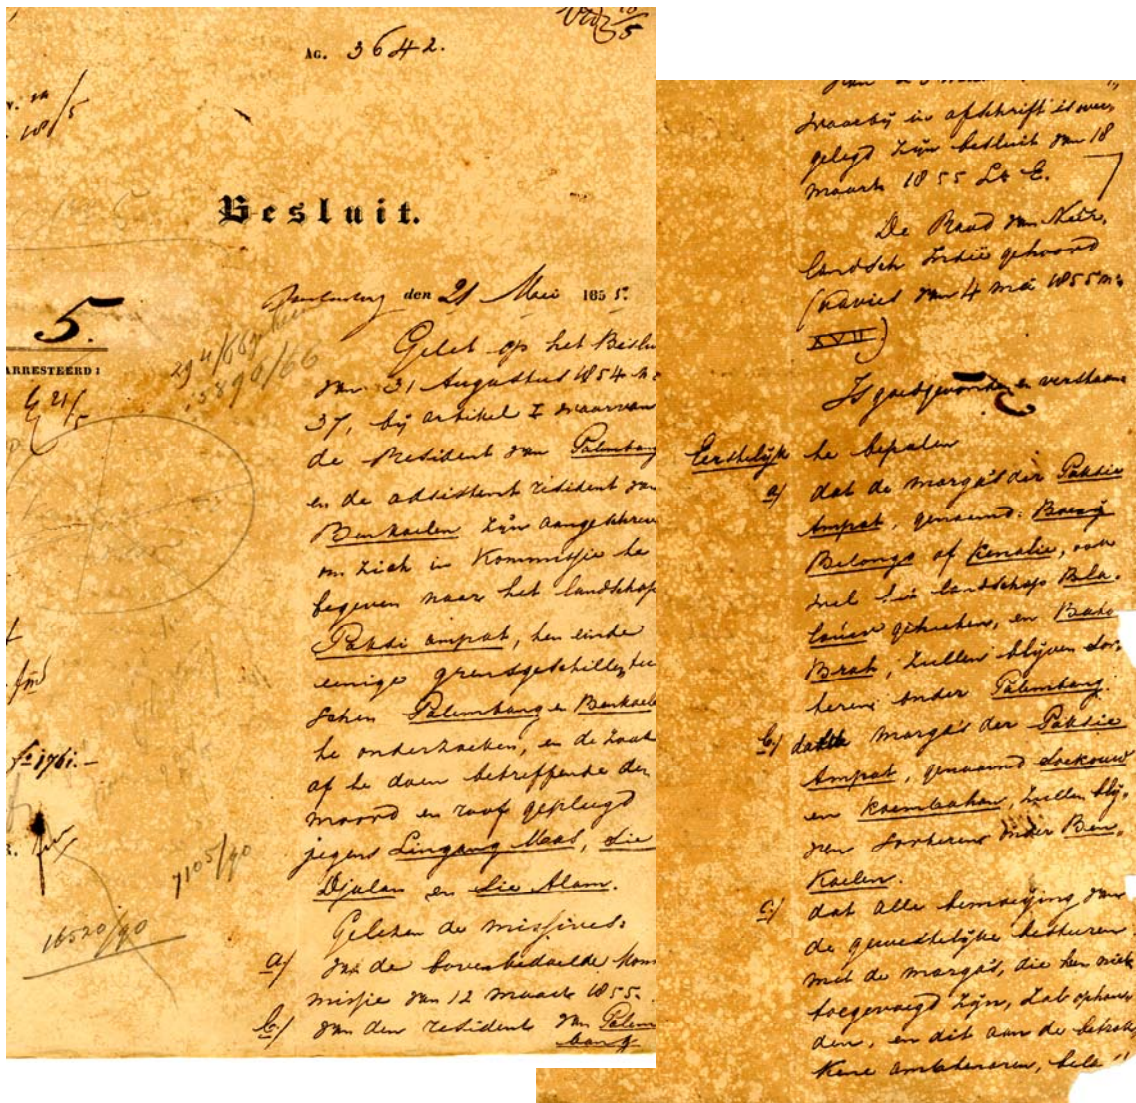 AG. 3642.
18/5
Besluit.
5.
den 21 Mei 1855.
ARRESTEERD:
21/5
Gelet op het Beslu
van 31 Augustus 1854 No
37, bij artikel I waarvan
de Resident van Palembang
en de adsistent resident van
Benkoelen zijn aangeschreven
om zich in Kommissie te
begeven naar het landschap
Paksi ampat, ten einde
eenige grensgeschillen tus
schen Palembang en Benkoele
te onderzoeken, en de zaak
af te doen betreffende den
moord en roof gepleegd
jegens Lingang Maas, Sie
Djalan en Sie Alam.
Gelezen de missives:
a/ van de bovenbedoelde Kom
missie van 12 maart 1855.
b/ van den resident van Palem
bang
7105/90
16520/90
waarbij in afschrift is over
gelegd zijn besluit van 18
maart 1855 La E.
De Raad van Neêr
landsch Indië gehoord
(advies van 4 mei 1855 no
XVII)
Is goedgevonden en verstaan
Eerstelijk te bepalen
a/ dat de marga's der Paksie
Ampat, genaamd:
Belongo of Kenalie, ook
wel het landschap Bela
lauw geheeten, en
Brak, zullen blijven sor
teren onder Palembang.
b/ dat de marga's der Paksie
Ampat, genaamd Soekouw
en Koembahan, zullen blij
ven sorteren onder Ben
koelen.
c/ dat alle bemoeijing van
de gewestelijke besturen
met de marga's, die hen niet
toegevoegd zijn, zal ophou
den, en dit aan de betrok
kene ambtenaren, bela